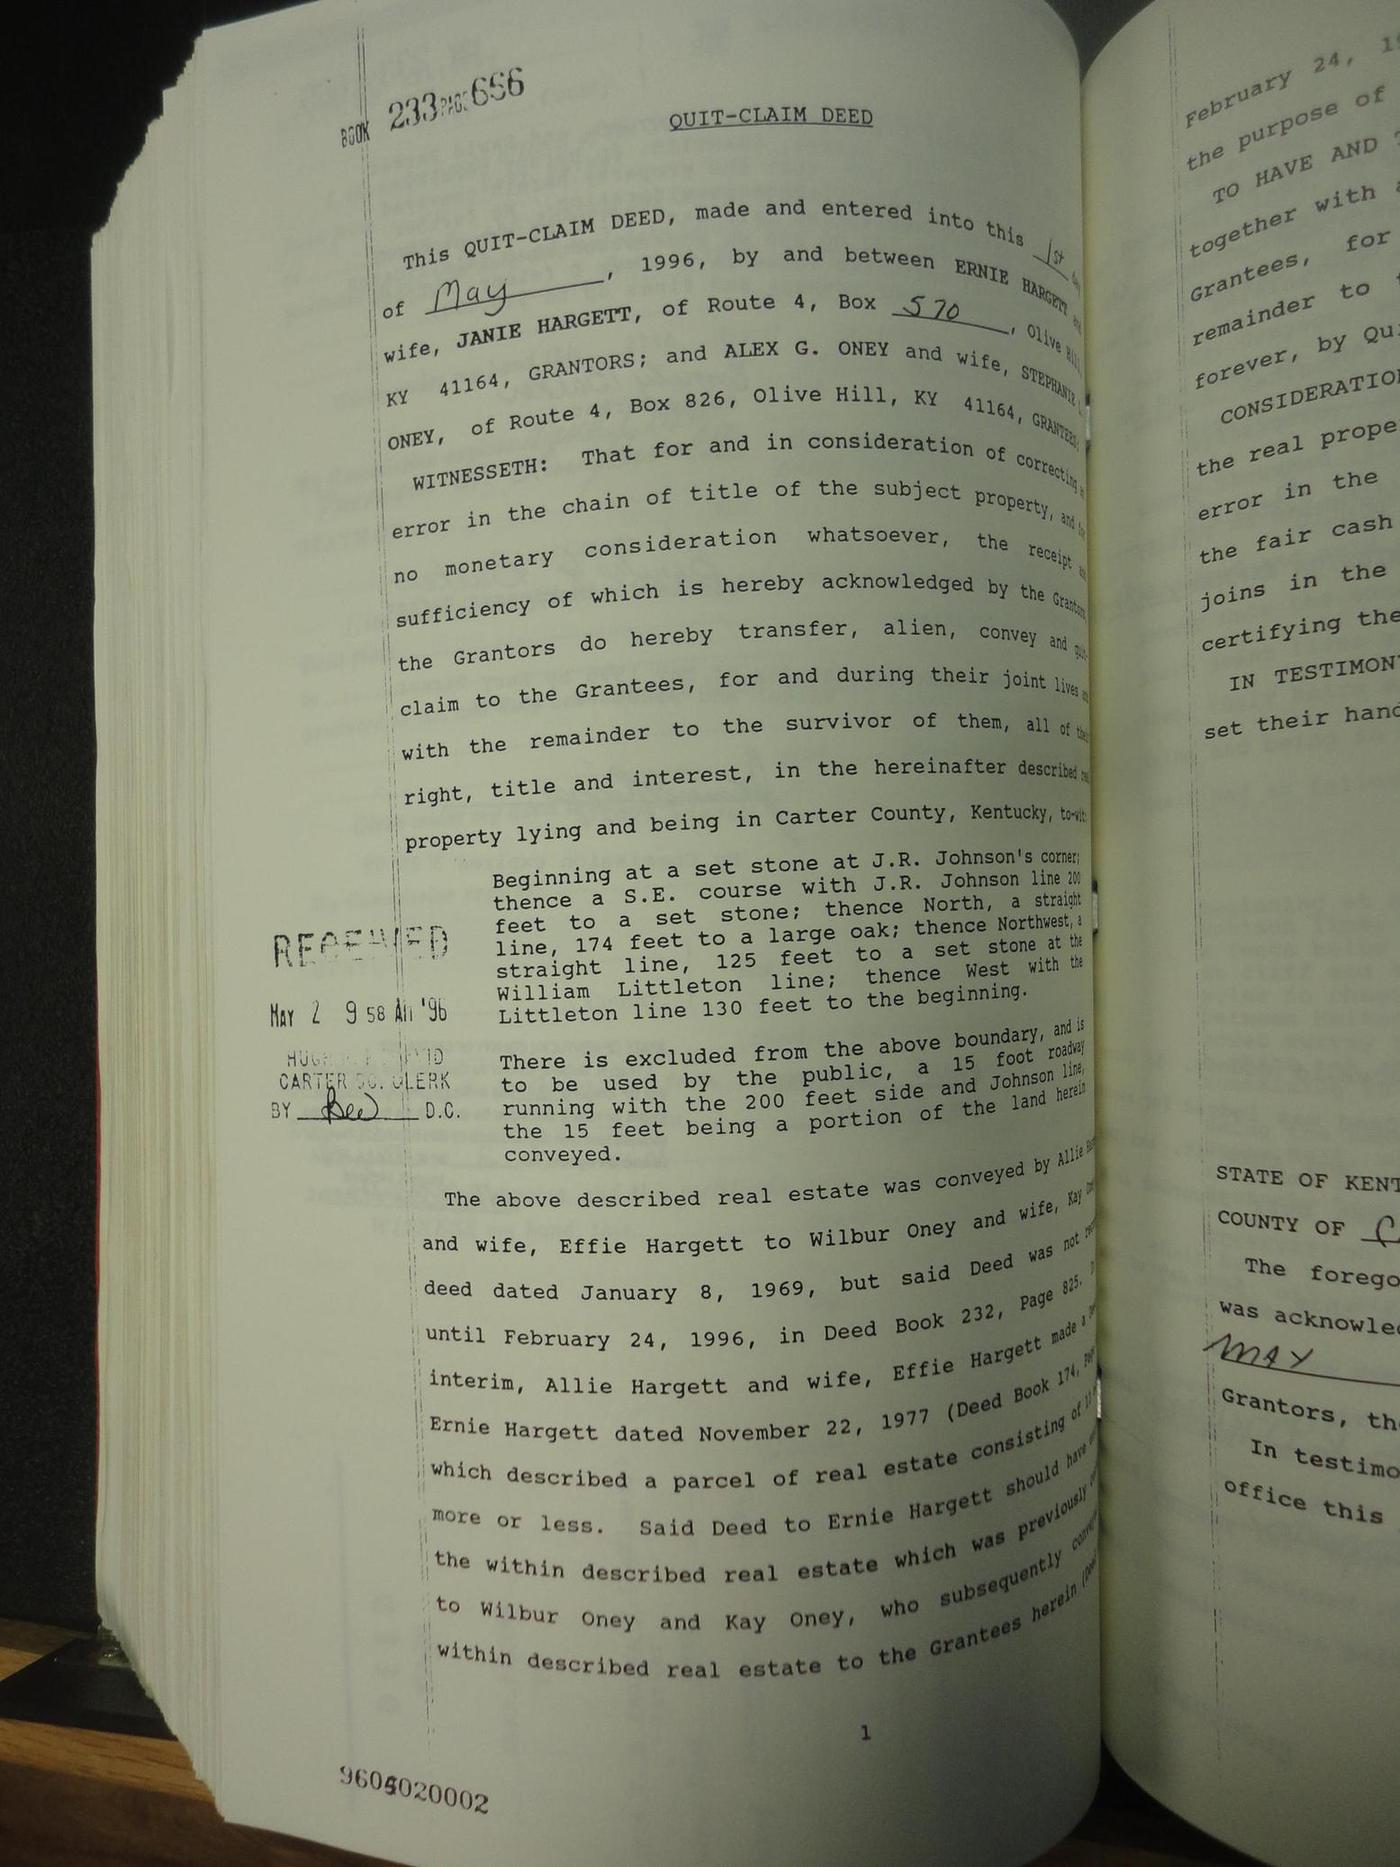 BOOK 233 PAGE 656
QUIT-CLAIM DEED
This QUIT-CLAIM DEED, made and entered into this 1st
of May, 1996, by and between ERNIE HARGETT and
wife, JANIE HARGETT, of Route 4, Box 570, Olive Hill,
KY 41164, GRANTORS; and ALEX G. ONEY and wife, STEPHANIE
ONEY, of Route 4, Box 826, Olive Hill, KY 41164, GRANTEES;
WITNESSETH: That for and in consideration of correcting
error in the chain of title of the subject property, and for
no monetary consideration whatsoever, the receipt and
sufficiency of which is hereby acknowledged by the Grantors
the Grantors do hereby transfer, alien, convey and quit-
claim to the Grantees, for and during their joint lives
with the remainder to the survivor of them, all of their
right, title and interest, in the hereinafter described
property lying and being in Carter County, Kentucky, to-wit:
Beginning at a set stone at J.R. Johnson's corner;
thence a S.E. course with J.R. Johnson line 200
feet to a set stone; thence North, a straight
line, 174 feet to a large oak; thence Northwest, a
straight line, 125 feet to a set stone at the
William Littleton line; thence West with the
Littleton line 130 feet to the beginning.
RECEIVED
MAY 2 9 58 AM '96
CARTER CO. CLERK
BY D.C.
There is excluded from the above boundary, and is
to be used by the public, a 15 foot roadway
running with the 200 feet side and Johnson line,
the 15 feet being a portion of the land herein
conveyed.
The above described real estate was conveyed by Allie
and wife, Effie Hargett to Wilbur Oney and wife, Kay
deed dated January 8, 1969, but said Deed was not
until February 24, 1996, in Deed Book 232, Page 825.
interim, Allie Hargett and wife, Effie Hargett made a
Ernie Hargett dated November 22, 1977 (Deed Book 174,
which described a parcel of real estate consisting of
more or less. Said Deed to Ernie Hargett should have
the within described real estate which was previously
to Wilbur Oney and Kay Oney, who subsequently
within described real estate to the Grantees herein
1
February 24,
the purpose of
TO HAVE AND
together with
Grantees, for
remainder to
forever, by
CONSIDERATION
the real
error in the
the fair cash
joins in the
certifying the
IN TESTIMONY
set their hand
STATE OF
COUNTY OF
The
was
MAY
Grantors,
In
office this